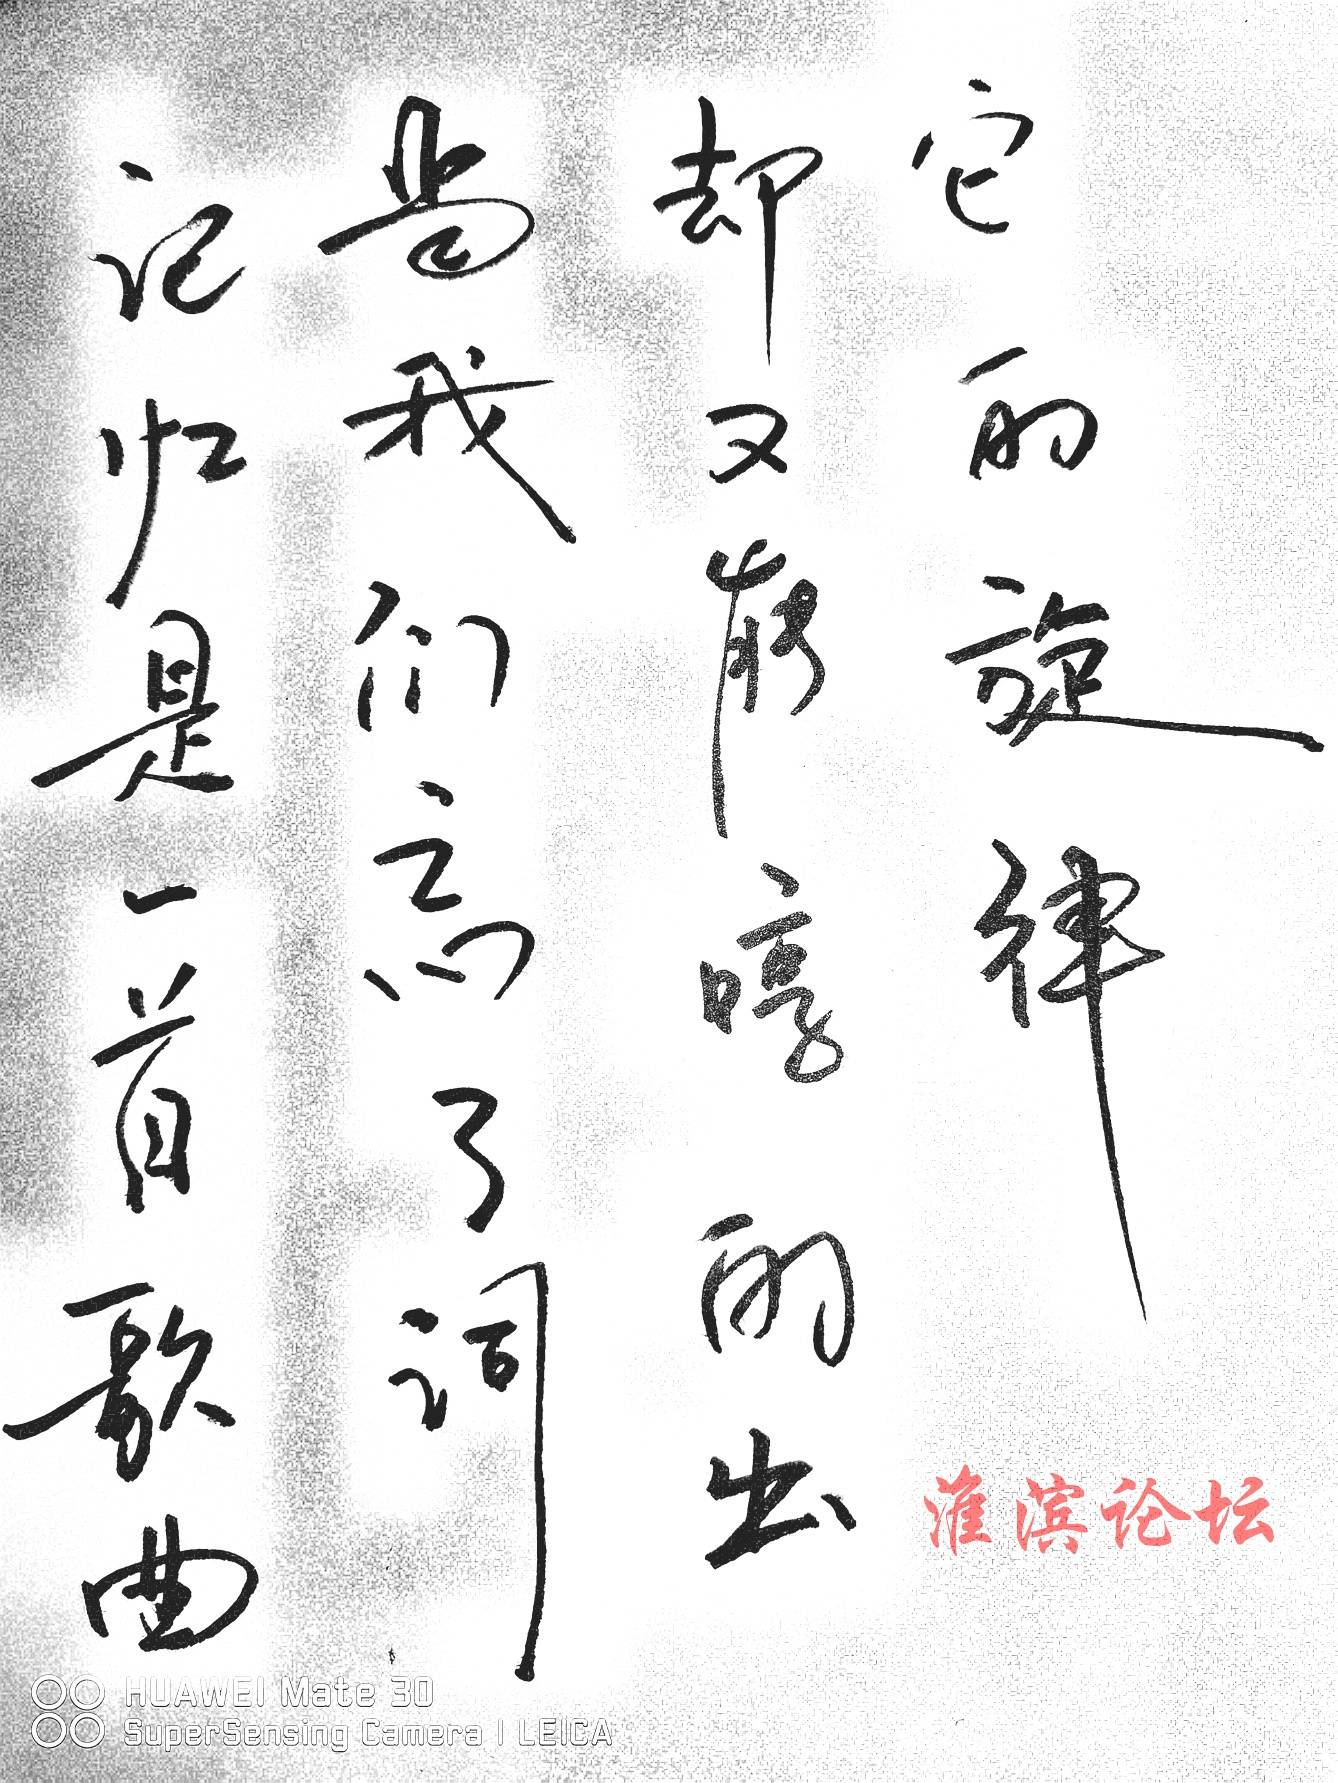 记忆是一首歌曲
当我们忘了词
却又能哼的出
它的旋律
淮滨论坛
HUAWEI Mate 30
SuperSensing Camera | LEICA